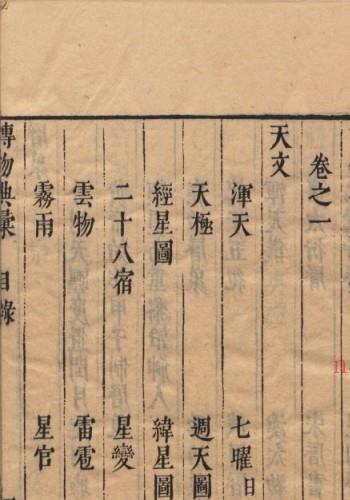 卷之一
天文
渾天 七曜
天極 週天圖
經星圖 緯星圖
二十八宿 星變
雲物 雷雹
霧雨 星官
博物典彙 目錄